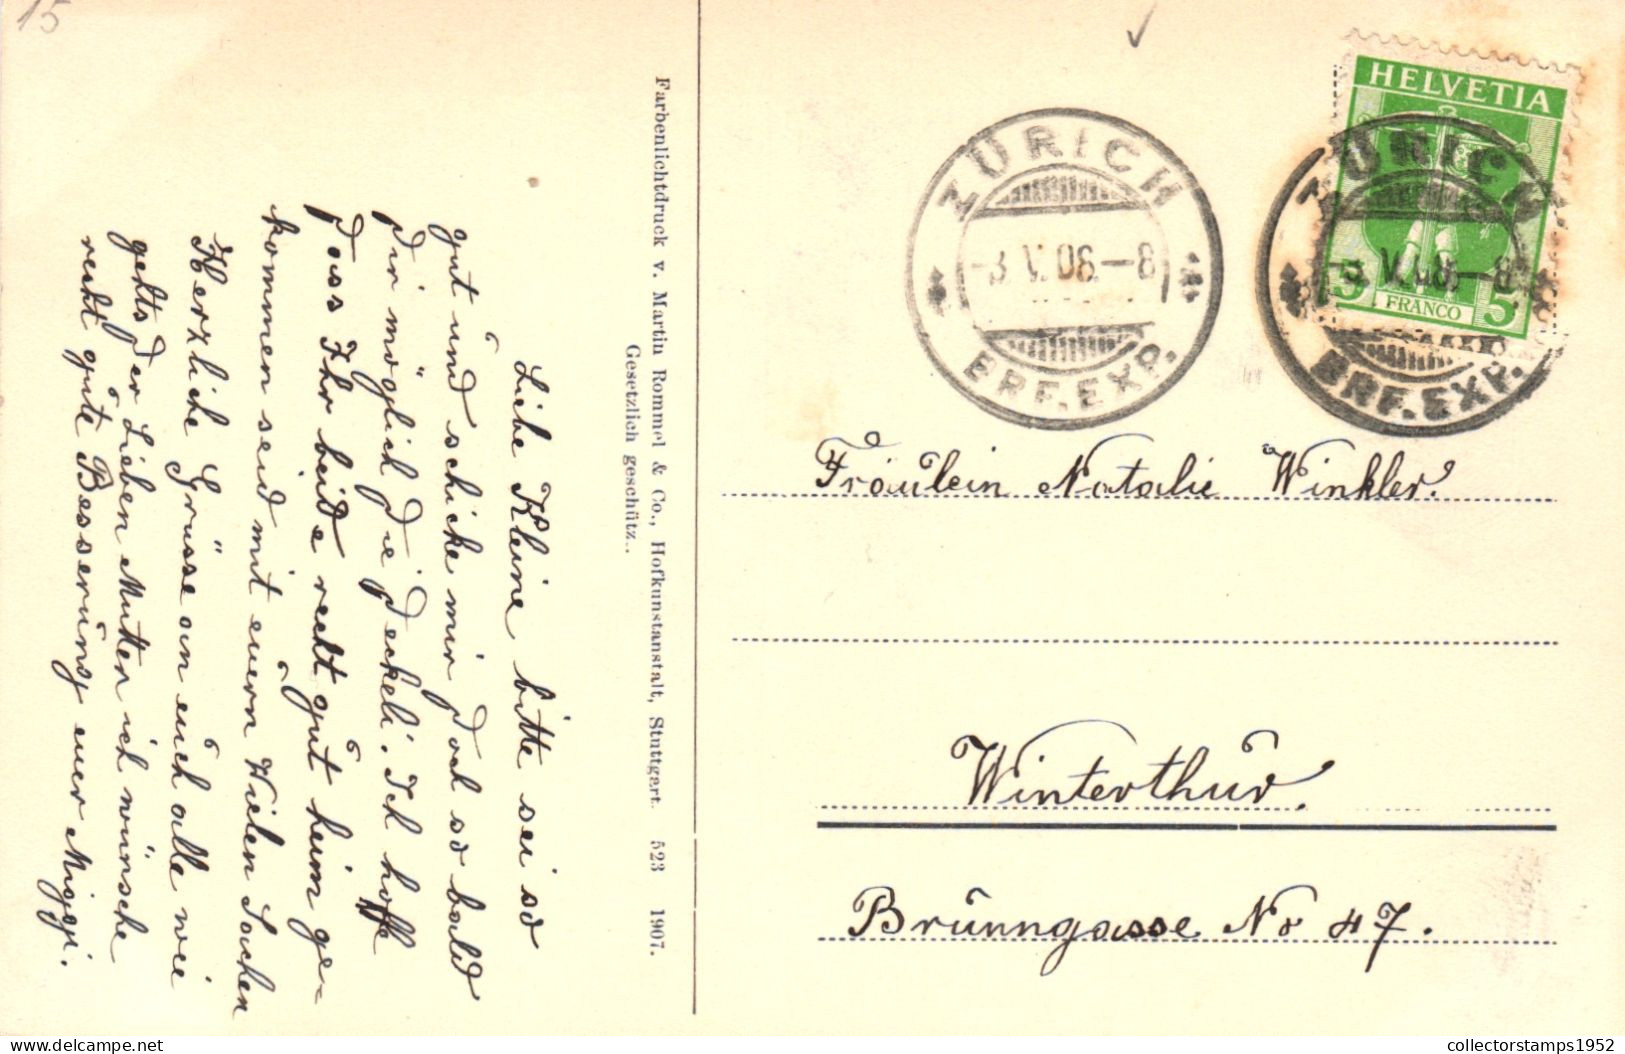 15
Liebe Kleine bitte sei so
gut und schicke mir doch so bald
Dir möglich die Deckeli. Ich hoffe
dass Ihr beide recht gut heim ge-
kommen seid mit euern Vielen Sachen
Herzliche Grüsse an euch alle wie
gehts der Lieben Mutter ich wünsche
recht gute Besserung euer Miggi.
Farbenlichtdruck v. Martin Rommel & Co., Hofkunstanstalt, Stuttgart. 523 1907.
Gesetzlich geschütz..
ZÜRICH
-3.V.08.-8
BRF.EXP.
HELVETIA
5 FRANCO 5
ZÜRICH
-3.V.08.-8
BRF.EXP.
Fräulein Natalie Winkler.
Winterthur.
Brunngasse No 47.
https://www.delcampe.net
collectorstamps1952